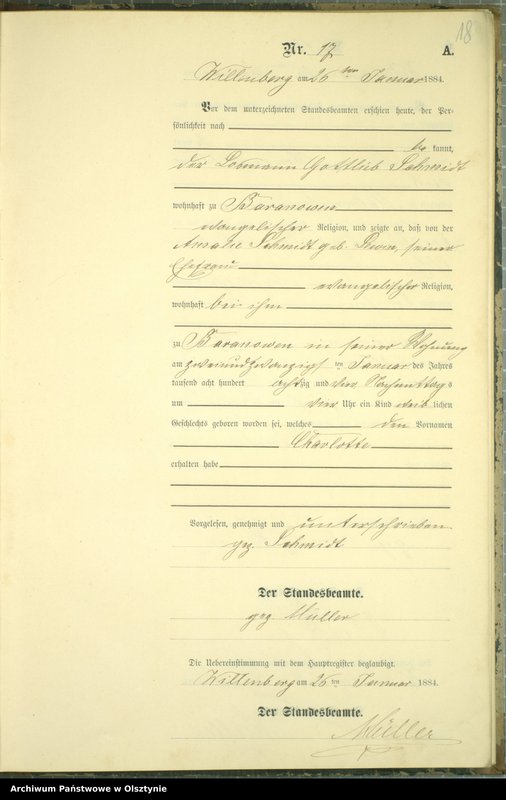 18
Nr. 17 A.
Willenberg am 26 ten Januar 1884.
Vor dem unterzeichneten Standesbeamten erschien heute, der Per-
sönlichkeit nach
be kannt,
der Gottlieb Schmidt
wohnhaft zu Baranowen
evangelischer Religion, und zeigte an, daß von der
Amalie Schmidt geb. seiner
Ehefrau
evangelischer Religion,
wohnhaft bei ihm
zu Baranowen in seiner Wohnung
am zweiundzwanzigsten Januar des Jahres
tausend acht hundert achtzig und vier Nachmittags
um vier Uhr ein Kind weib lichen
Geschlechts geboren worden sei, welches den Vornamen
Charlotte
erhalten habe
Vorgelesen, genehmigt und unterschrieben
gez. Schmidt
Der Standesbeamte.
gez Müller
Die Uebereinstimmung mit dem Hauptregister beglaubigt.
Willenberg am 26 ten Januar 1884.
Der Standesbeamte.
Müller
Archiwum Państwowe w Olsztynie